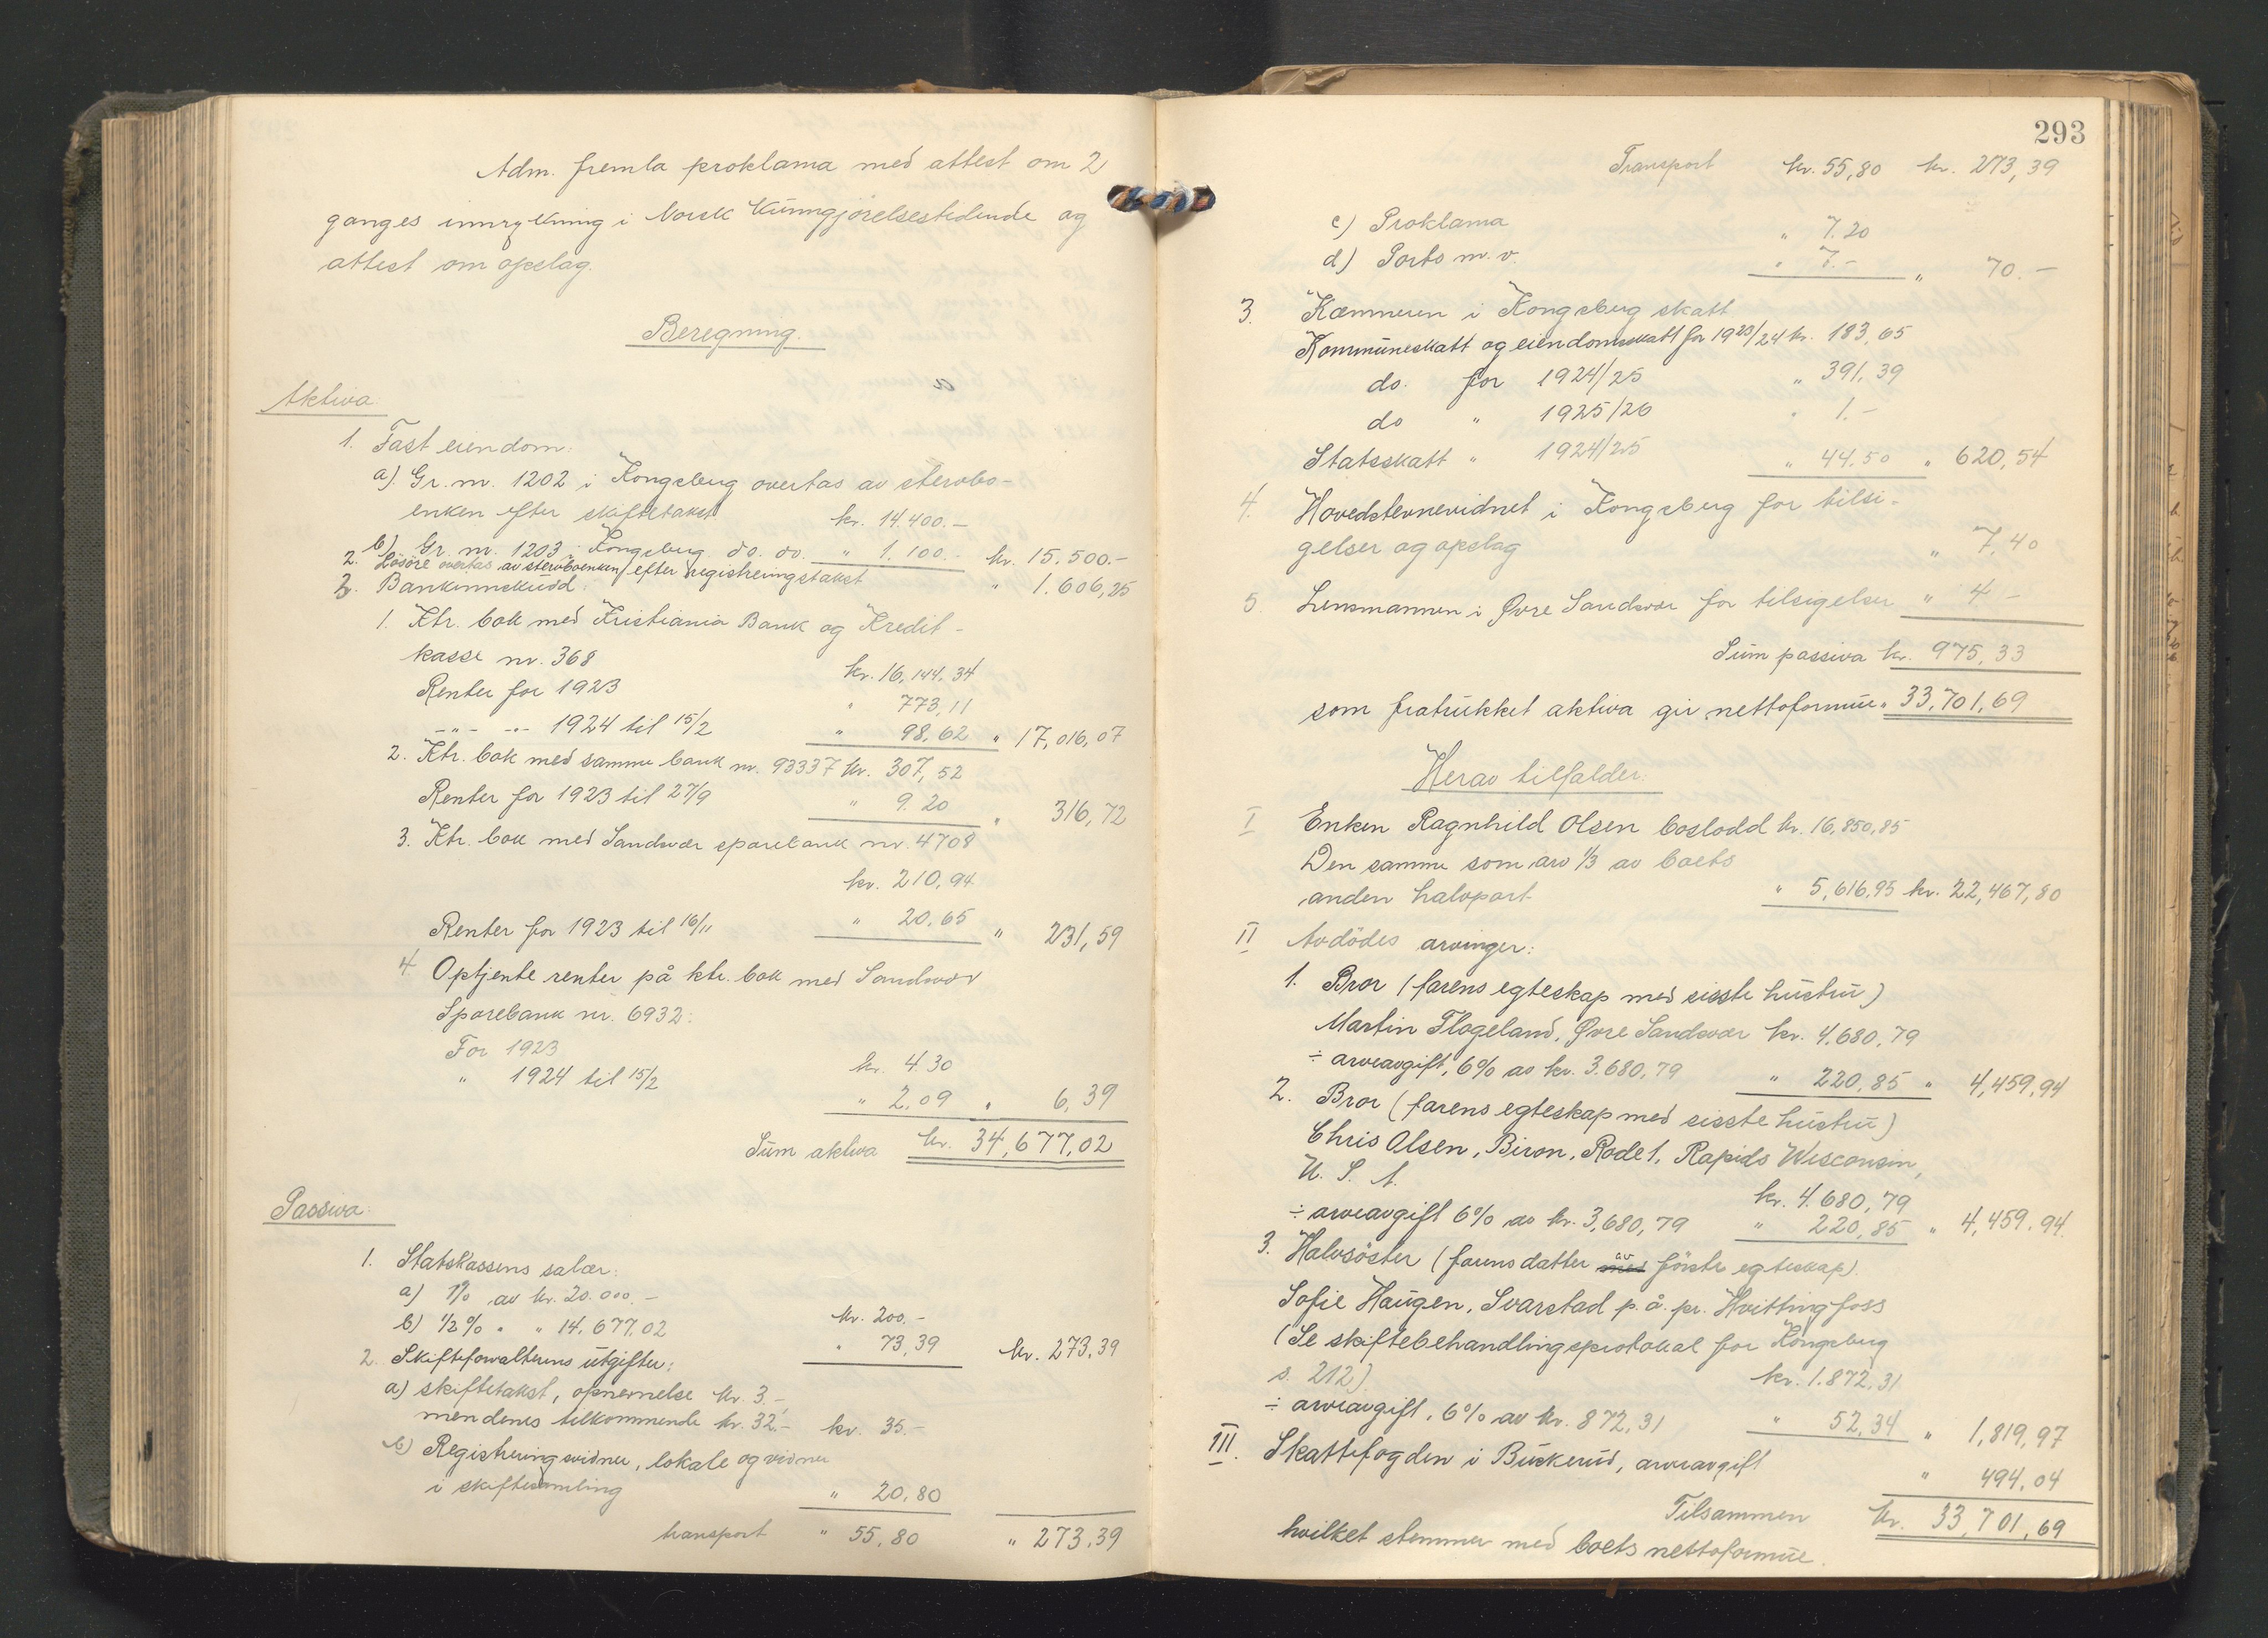 Adm. fremla proklama med attest om 2
ganges innrykning i Norsk Kunngjørelsestidende og
attest om opslag.
Beregning.
Aktiva.
1. Fast eiendom:
a). Gr. nr. 1202 i Kongsberg overtas av stervbo-
enken efter skiftetakst kr. 14.400.-
b) Gr. nr. 1203 i Kongsberg do. do. " 1.100.- kr. 15.500.-
2. Løsøre overtas av stervboenken efter registreringstakst " 1.606,25
3. Bankinnskudd:
1. Ktr. bok med Kristiania Bank og Kredit-
kasse nr. 368 kr. 16,144.34
Renter for 1923 " 773,11
-"- -"- 1924 til 15/2 " 98,62 " 17,016,07
2. Ktr. bok med samme bank nr. 93337 kr. 307,52
Renter for 1923 til 27/9 " 9.20 " 316,72
3. Ktr. bok med Sandsvær sparebank nr. 4708
kr. 210,94
Renter for 1923 til 16/11 " 20,65 " 231,59
4. Optjente renter på ktr. bok med Sandsvær
Sparebank nr. 6932:
For 1923 kr. 4.30
" 1924 til 15/2 " 2,09 " 6,39
Sum aktiva kr. 34,677,02
Passiva.
1. Statskassens salær:
a) 1% av kr. 20.000.- kr. 200.-
b) 1/2% " " 14.677.02 " 73,39 kr. 273,39
2. Skifteforvalterens utgifter:
a) skiftetakst, opnevnelse kr. 3.-,
mendenes tilkommende kr. 32.- kr. 35.-
b) Registreringsvidner, lokale og vidner
i skiftesamling " 20.80
transport " 55,80 " 273,39
293
Transport kr. 55,80 kr. 273,39
c) Proklama " 7.20
d) Porto m. v. " 7.- " 70.-
3. Kæmneren i Kongsberg skatt
Kommuneskatt og eiendomsskatt for 1923/24 kr. 183,65
do. for 1924/25 " 391,39
do " 1925/26 " 1.-
Statsskatt " 1924/25 " 44.50 " 620,54
4. Hovedstevnevidnet i Kongsberg for tilsi-
gelser og opslag " 7,40
5. Lensmannen i Øvre Sandsvær for tilsigelser " 4-
Sum passiva kr. 975,33
som fratrukket aktiva gir nettoformue " 33,701,69
Herav tilfalder:
I Enken Ragnhild Olsen boslodd kr. 16,850,85
Den samme som arv 1/3 av boets
anden halvpart " 5,616,95 kr. 22,467,80
II Avdødes arvinger:
1. Bror (farens egteskap med sisste hustru)
Martin Flogeland, Øvre Sandsvær kr. 4.680,79
÷ arveavgift, 6% av kr. 3.680,79 " 220,85 " 4,459,94
2. Bror (farens egteskap med sisste hustru)
Chris Olsen, Biron, Rode 1, Rapids Wisconsin,
U. S. A. kr. 4.680,79
÷ arveavgift 6% av kr. 3,680,79 " 220,85 " 4,459.94.
3. Halvsøster (farens datter med av første egteskap)
Sofie Haugen, Svarstad p. å. pr. Hvittingfoss
(Se skiftebehandlingsprotokal for Kongsberg
s. 212) kr. 1.872,31
÷ arveavgift, 6% av kr. 872,31 " 52,34 " 1,819,97
III. Skattefogden i Buskerud, arveavgift " 494,04
Tilsammen kr. 33,701,69
hvilket stemmer med boets nettoformue.